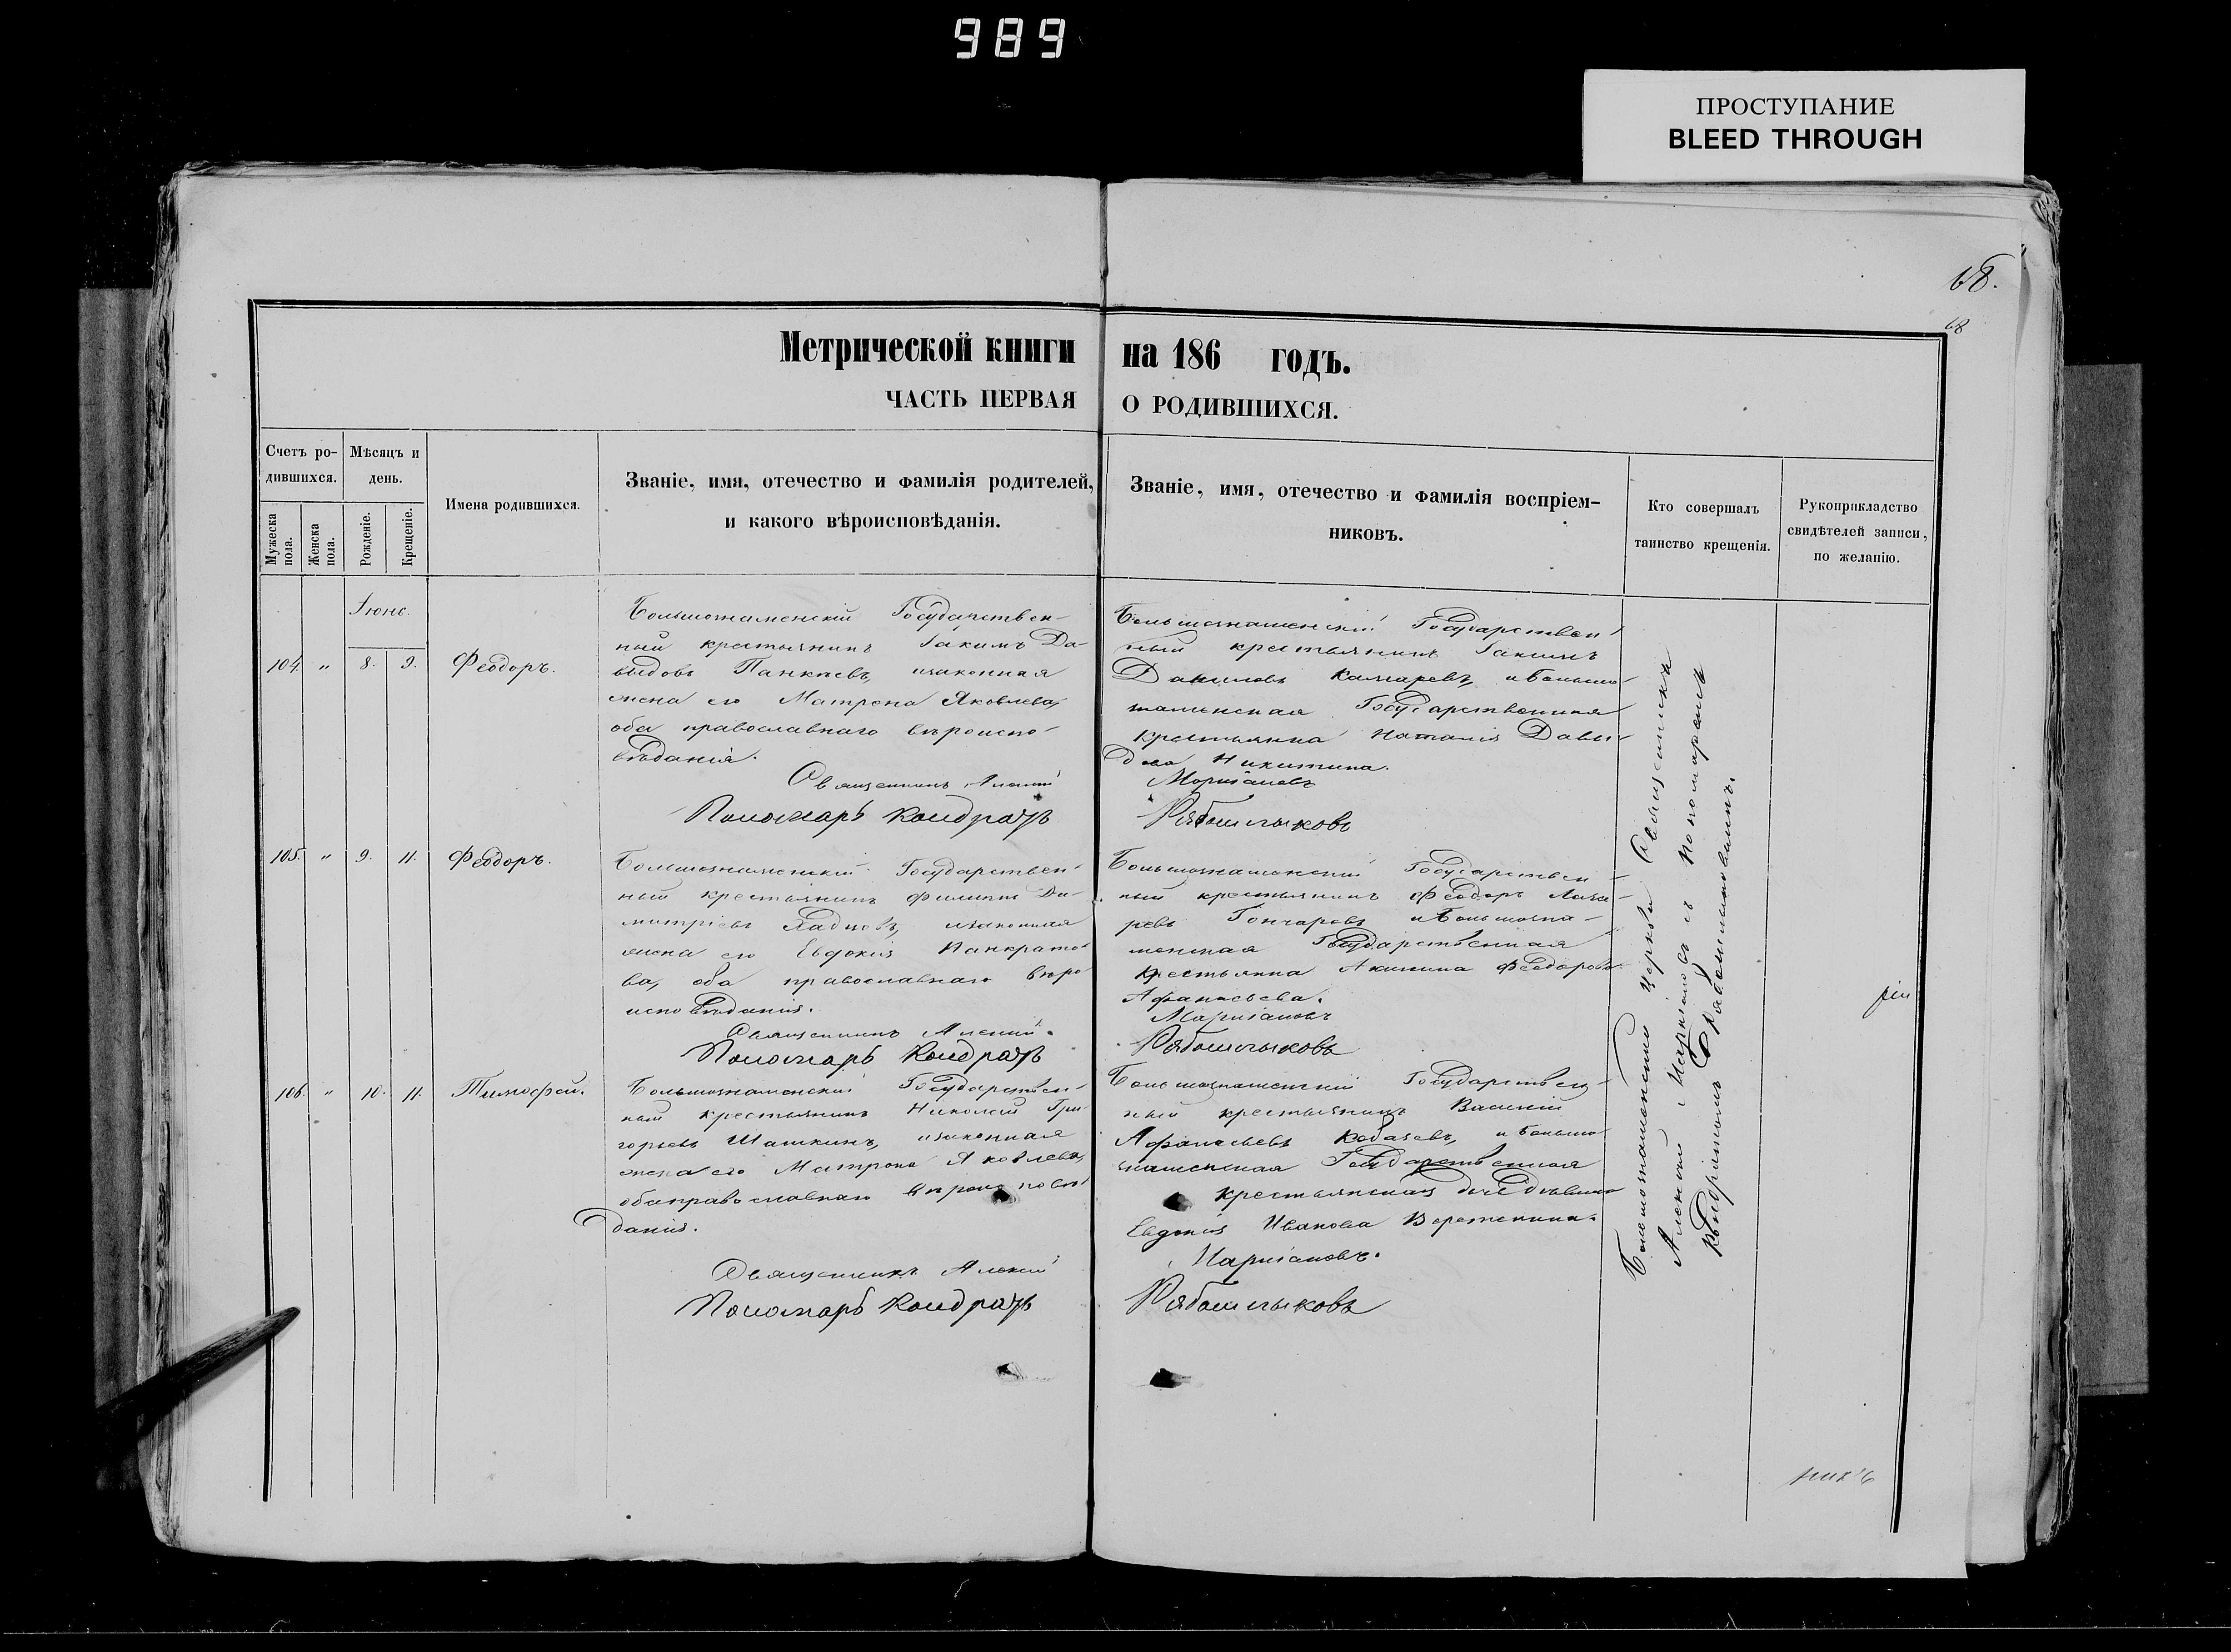 989
ПРОСТУПАНИЕ
BLEED THROUGH
68.
68
Метрической книги на 186 годъ.
ЧАСТЬ ПЕРВАЯ О РОДИВШИХСЯ.
Счетъ ро-
дившихся.
Мужеска
пола.
Женска
пола.
Мѣсяцъ и
день.
Рожденіе.
Крещеніе.
Имена родившихся.
Званіе, имя, отечество и фамилія родителей,
и какого вѣроисповѣданія.
Званіе, имя, отечество и фамилія воспріем-
никовъ.
Кто совершалъ
таинство крещенія.
Рукоприкладство
свидѣтелей записи,
по желанію.
Іюнь.
104. " 8. 9. Феодоръ.
Большознаменскій Государствен-
ный крестьянинъ Іакимъ Да-
выдовъ изаконная
жена его Матрона Яковлева,
оба православнаго вѣроиспо-
вѣданія.
Священникъ Алексій
Пономарь Кондратъ
Большознаменскій Государствен-
ный крестьянинъ
Даниловъ и Больш
знаменская Государственная
крестьянка Наталія Давы-
дова Никитина.
Маржановъ
Рябошлыковъ
105. " 9. 11. Феодоръ.
Большознаменскій Государствен-
ный крестьянинъ Филиппъ Ди-
митріевъ изаконная
жена его Евдокія Панкрато-
ва, оба православнаго вѣро-
исповѣданія.
Священникъ Алексій.
Пономарь Кондратъ
Большознаменскій Государствен-
ный крестьянинъ Феодоръ Лаза-
ревъ Гончаровъ и Большозна-
менская Государственная
крестьянка Акилина Феодорова
Афанасьева.
Маржановъ
Рябошлыковъ
106. " 10. 11. Тимофей.
Большознаменскій Государствен-
ный крестьянинъ Николай Гри-
горьевъ Шашкинъ, изаконная
жена его Матрона Яковлева,
оба православнаго вѣроисповѣ-
данія.
Священникъ Алексій
Пономарь Кондратъ
Большознаменскій Государствен-
ный крестьянинъ Василій
Афанасьевъ и Больш
знаменская Государственная
крестьянская
Евдокія Иванова
Маржановъ.
Рябошлыковъ
Большознаменской Церкви Священникъ
Алексій Маржановъ съ пономаремъ
Кондратомъ Рябошлыковымъ.